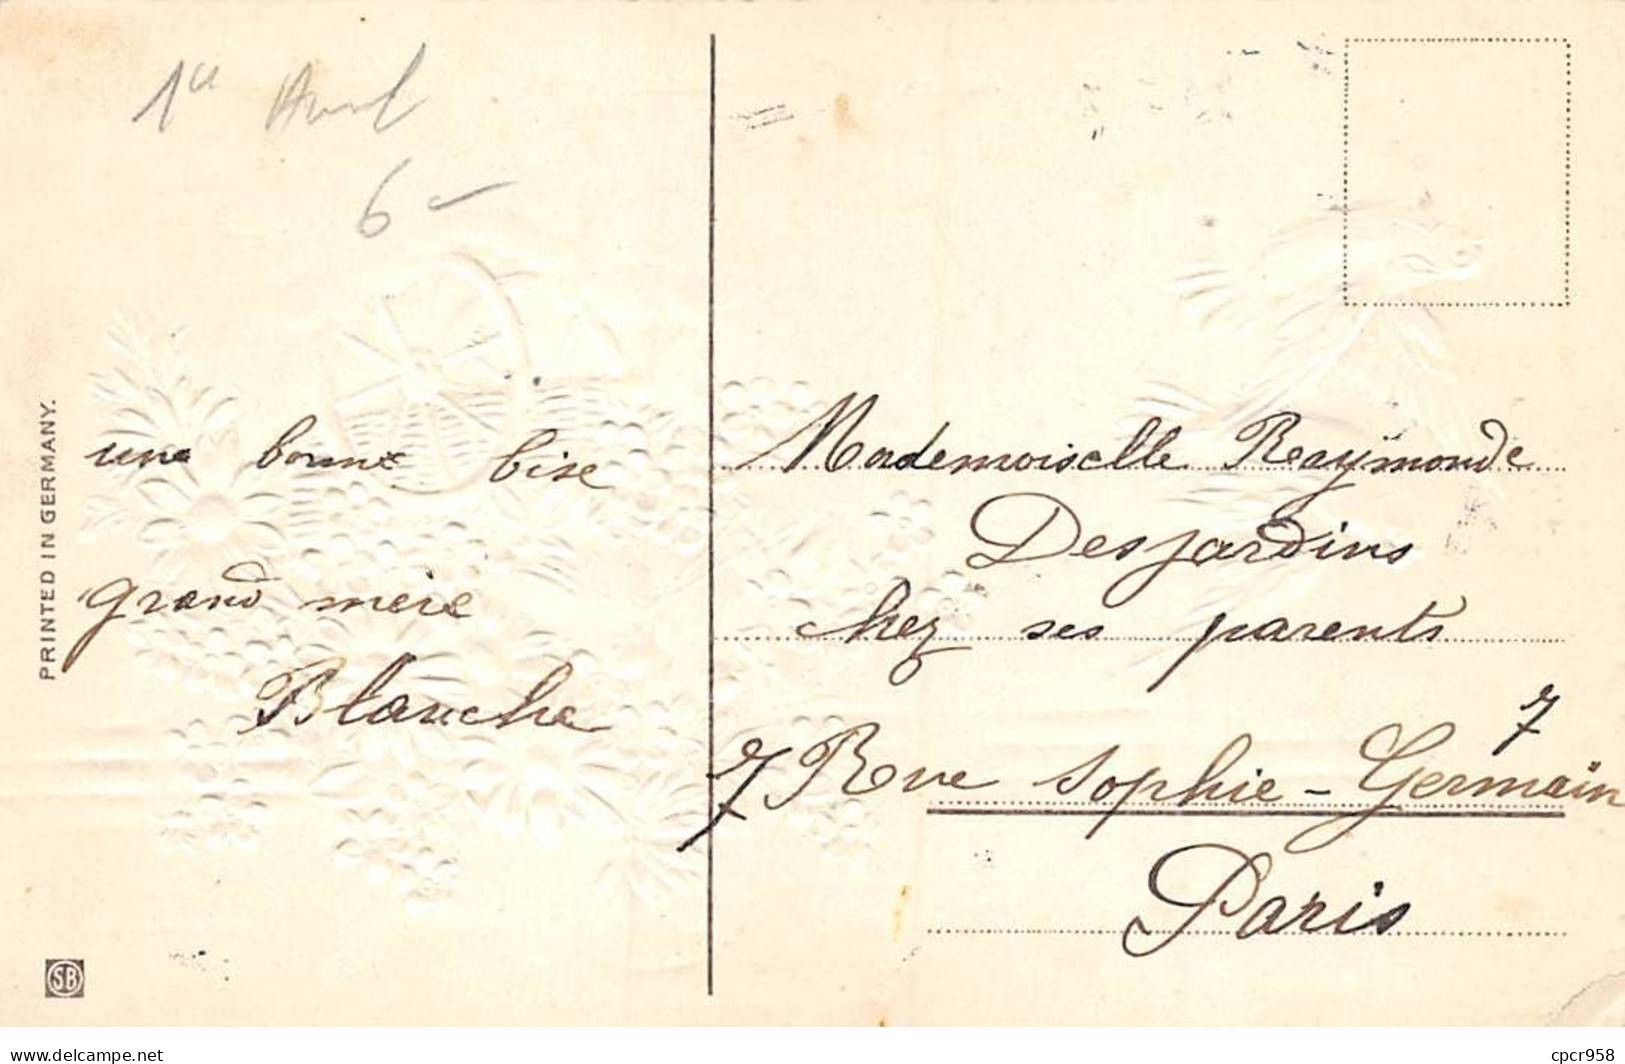 1er Avril
6 -
PRINTED IN GERMANY.
une bonne bise
grand mère
Blanche
SB
Mademoiselle Reaymonde
Desjardins
chez ses parents
7
7 Rue Sophie - Germain
Paris
www.delcampe.net
cpcr958